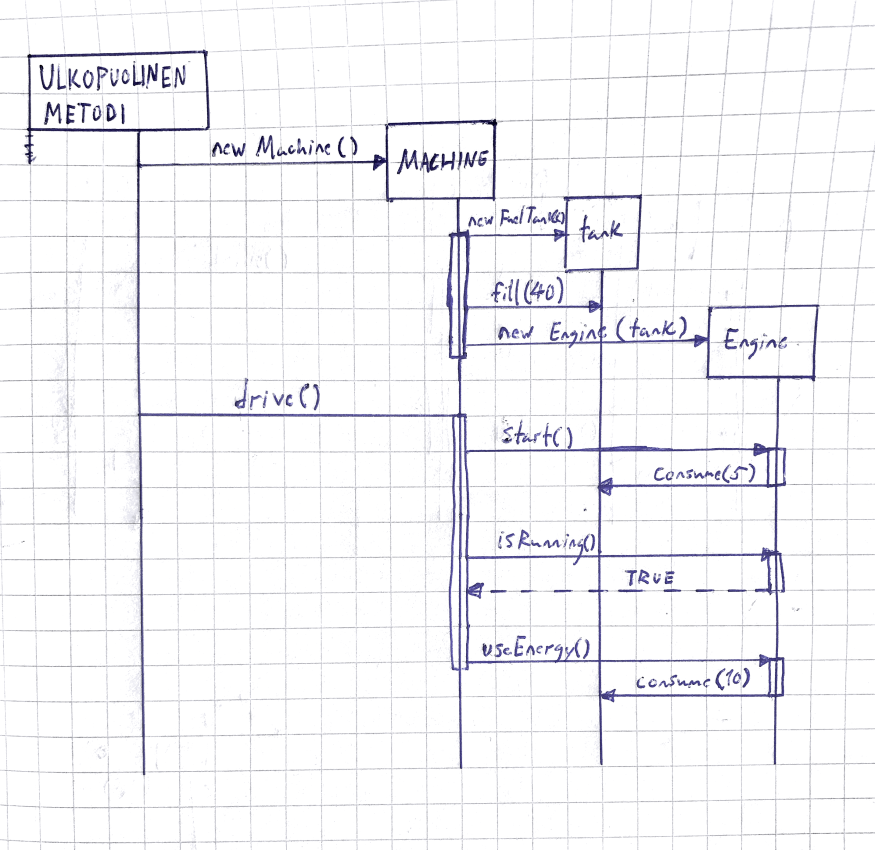 ULKOPUOLINEN
METODI
new Machine()
MACHINE
new FuelTank()
tank
fill(40)
new Engine(tank)
Engine
drive()
start()
consume(5)
isRunning()
TRUE
useEnergy()
consume(10)